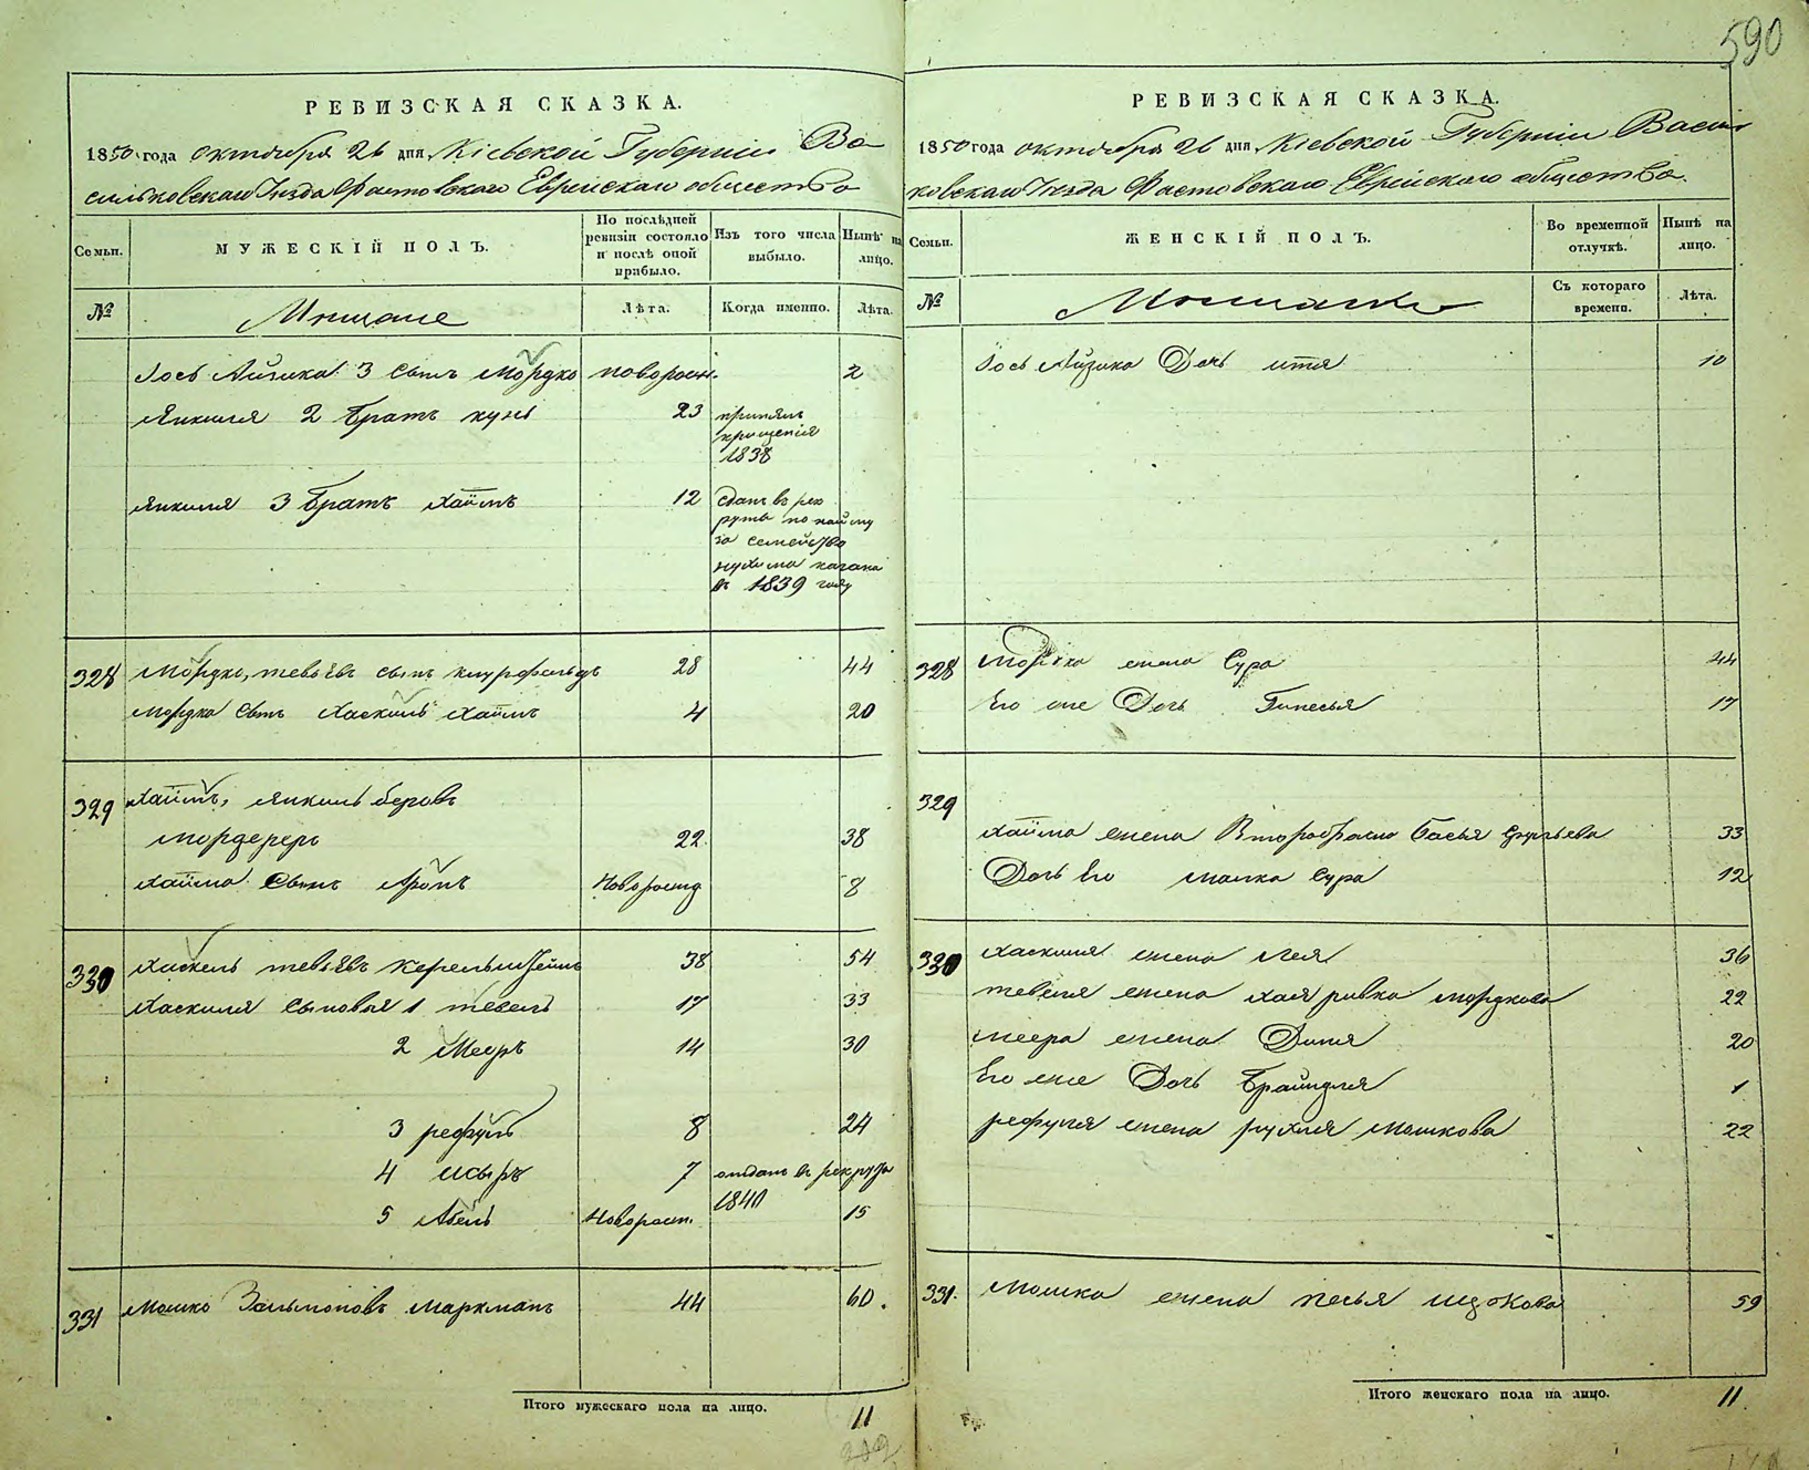 590
РЕВИЗСКАЯ СКАЗКА.
1850 года октября 26 дня, Кіевской Губерніи Ва
сильковскаго Уѣзда Фастовскаго Еврейскаго общества
Семьи.
МУЖЕСКІЙ ПОЛЪ.
По послѣдней ревизіи состояло и послѣ оной прибыло.
Изъ того числа выбыло.
Нынѣ на лицо.
№
Мѣщане
Лѣта.
Когда именно.
Лѣта.
Іось Айзика 3 сынъ Мордко новорожд. 2
Янкеля 2 братъ 23 принялъ
крещенія
1838
Янкеля 3 братъ Хаимъ 12 сданъ въ рек
руты по найму
за семейство
Нухима кагана
въ 1839 году
328 Мордко, тевьевъ сынъ 28 44
Мордка сынъ Хаскель Хаимъ 4 20
329 Хаимъ, Янкель беровъ
мордерерь 22 38
Хаима сынъ Аронъ Новорожд 8
330 Хаскель тевьевъ Керельштейнъ 38 54
Хаскеля сыновья 1 тевель 17 33
2 Мееръ 14 30
3 рефулъ 8 24
4 исыръ 7 отданъ въ рекрута
1840
5 Абель Новорожд. 15
331 Мошко Зальмоновъ Маркманъ 44 60.
Итого мужескаго пола на лицо. 11
РЕВИЗСКАЯ СКАЗКА.
1850 года октября 26 дня, Кіевской Губерніи Васил
ковскаго Уѣзда Фастовскаго Еврейскаго общества.
Семьи.
ЖЕНСКІЙ ПОЛЪ.
Во временной отлучкѣ.
Нынѣ на лицо.
№
Мѣщанки
Съ котораго времени.
Лѣта.
Іось Айзика Дочь итя 10
328 Мордка жена Сура 44
Его же Дочь 17
329
Хаима жена Второбрачна Басья 33
Дочь Его малка Сура 12
330 Хаскеля жена Лея 36
тевеля жена Хая ривка мордкова 22
меера жена Диня 20
Его же Дочь Брайндля 1
рефуля жена рухля мошкова 22
331. Мошка жена песья ицкова 59
Итого женскаго пола на лицо. 11.